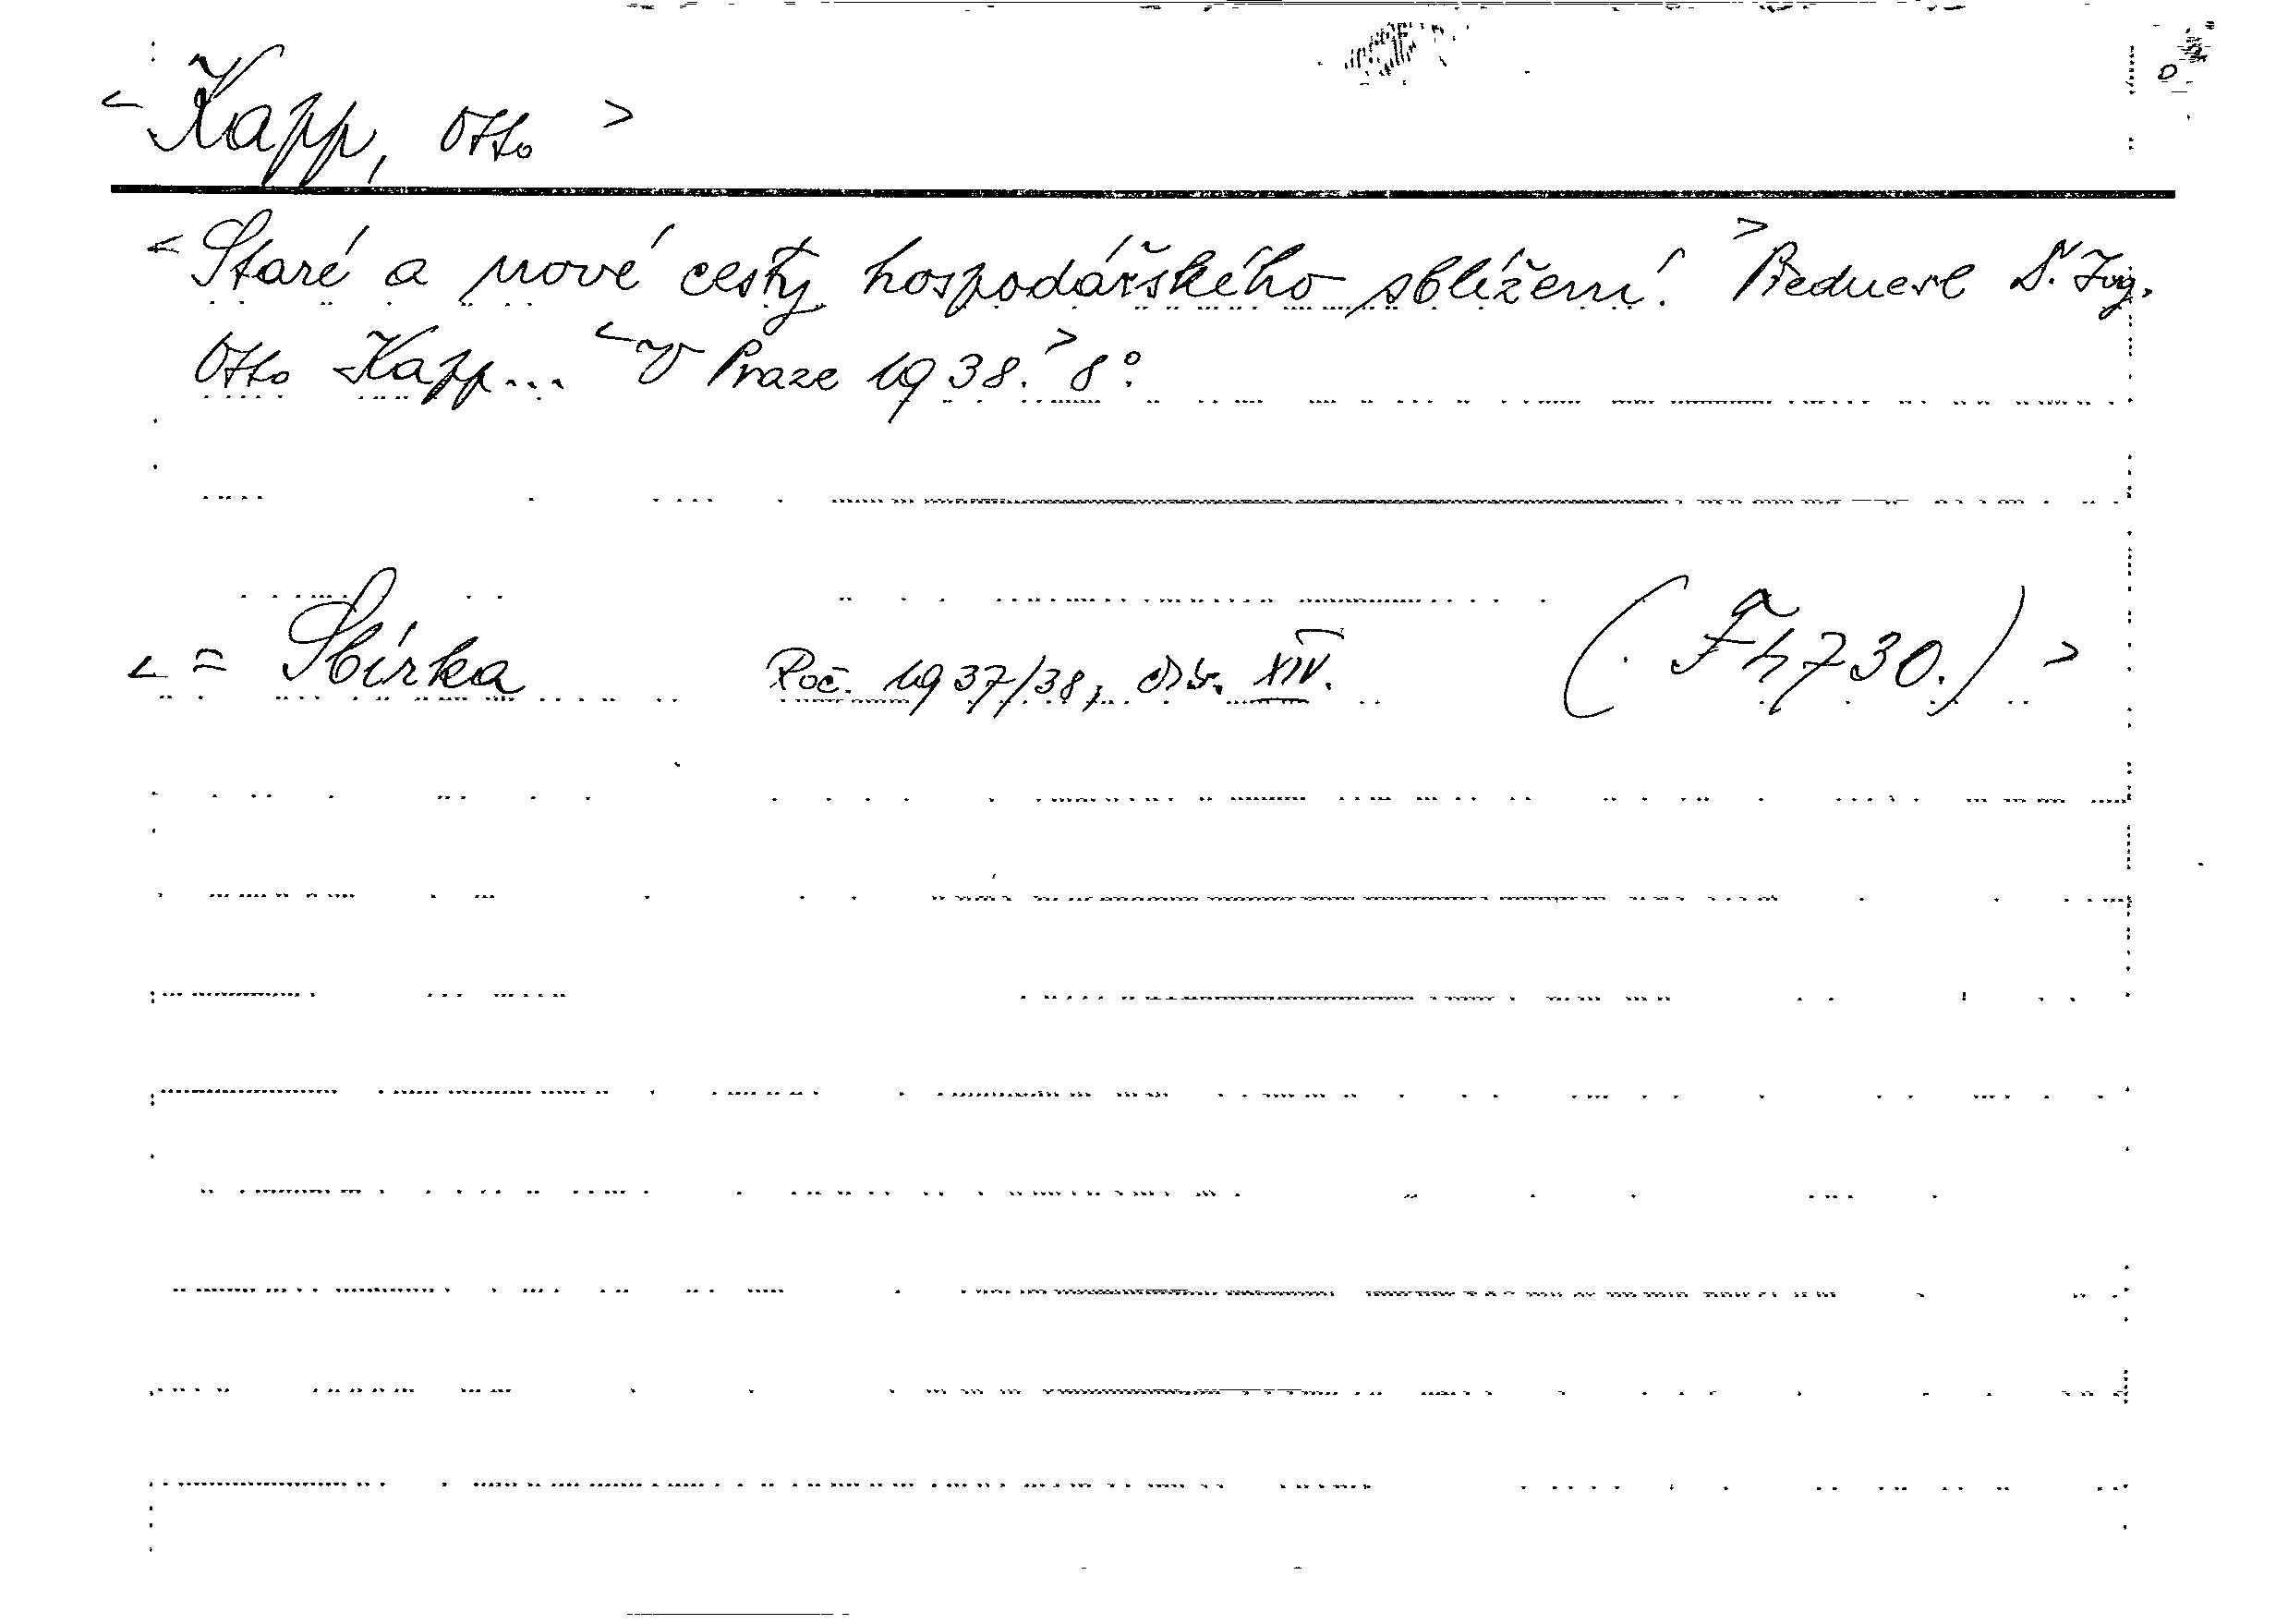 < Kapp, Otto >
< Staré a nové cesty hospodářského sblížení. > Přednesl D. Ing.
Otto Kapp... < V Praze 1938. > 8°.
< = Sbírka Roč. 1937/38, XIV. (F h 730.) >